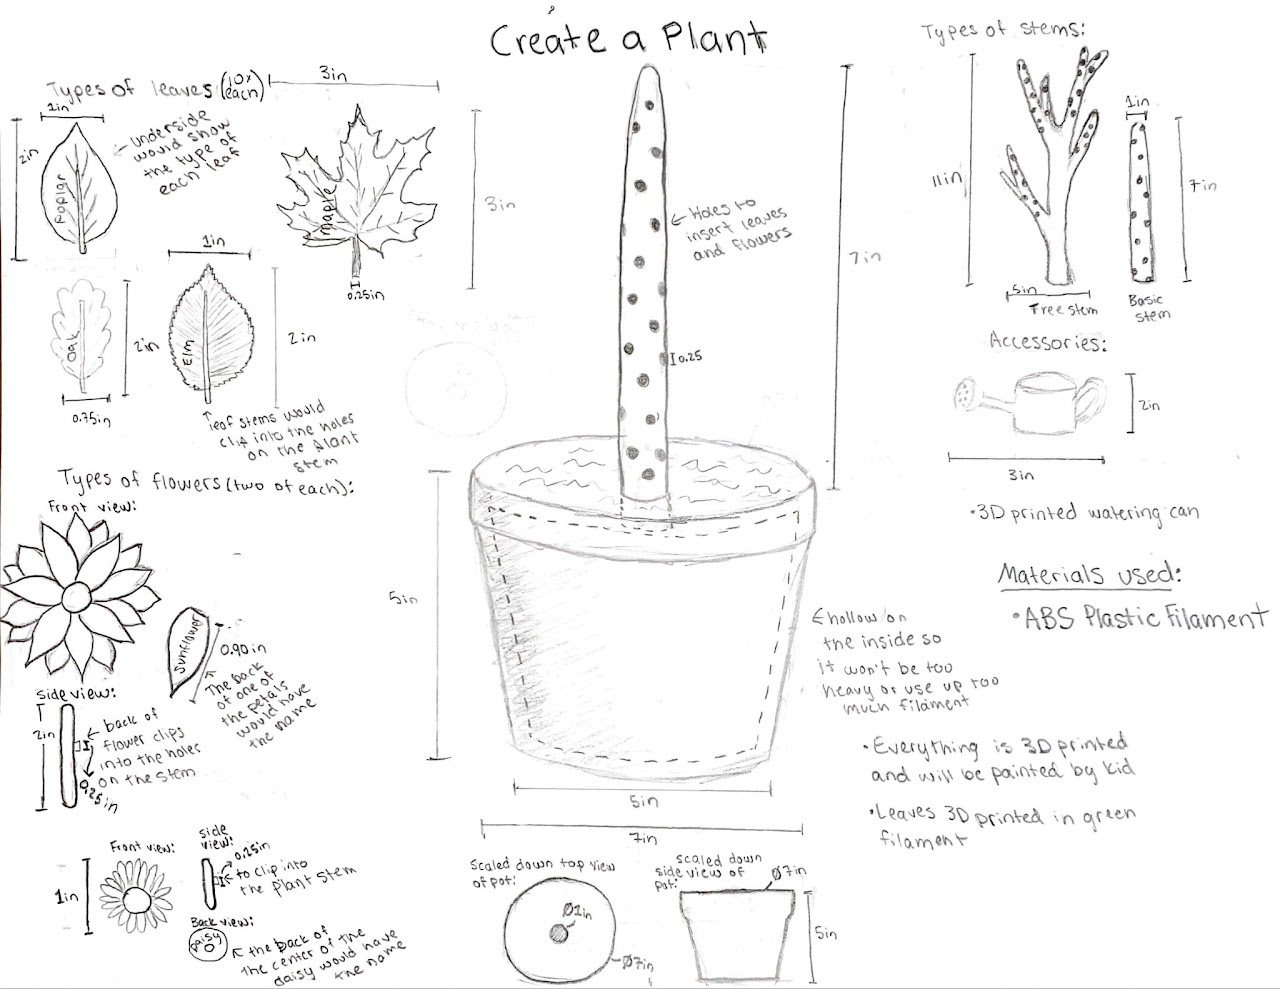 Create a Plant
Types of leaves (10x
each)
3in
1in
2in
Poplar
← underside
would show
the type of
each leaf
Maple
3in
0.25in
Oak
2in
0.75in
1in
Elm
2in
leaf stems would
clip into the holes
on the plant
stem
Types of flowers (two of each):
Front view:
Sunflower
0.90in
The back
of one of
the petals
would have
the name
side view:
2in
← back of
flower clips
into the holes
on the stem
0.25in
Front view:
1in
side
view:
0.25in
to clip into
the plant stem
Back view:
Daisy
← the back of
the center of the
daisy would have
the name
← Holes to
insert leaves
and flowers
7in
0.25
5in
5in
7in
← hollow on
the inside so
it won't be too
heavy or use up too
much filament
Scaled down top view
of pot:
Ø1in
Ø7in
scaled down
side view of
pot:
Ø7in
5in
Types of stems:
11in
5in
Tree stem
1in
7in
Basic
stem
Accessories:
2in
3in
•3D printed watering can
Materials used:
•ABS Plastic Filament
•Everything is 3D printed
and will be painted by kid
•Leaves 3D printed in green
filament